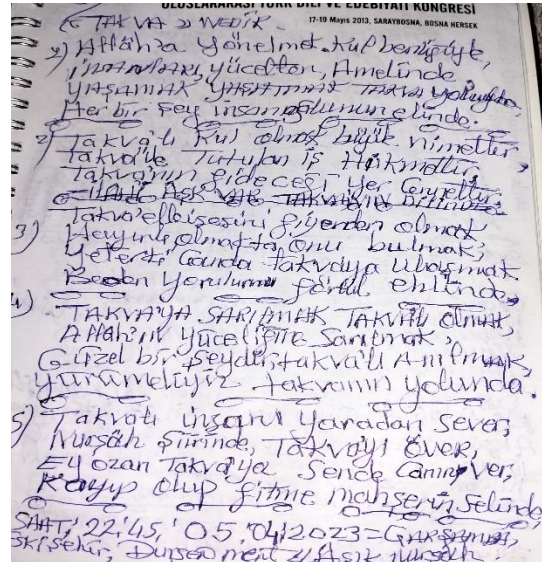 ULUSLARARASI TÜRK DİLİ VE EDEBİYATI KONGRESİ
17-19 Mayıs 2013, SARAYBOSNA, BOSNA HERSEK
TAKVA NEDİR
Allâh'a yönelmek kul benliğiyle,
yücelten, Amelinde
YAŞAMAK YAŞATMAK TAKVA yolunda,
Her bir şey insanoğlunun elinde.
2) Takva'lı kul olmak büyük nimettir,
Takva'yle Tutulan iş Hikmettir,
Takva'nın gideceği yer Cennettir,
AŞK VAR TAKVA'NIN
3) Takva elbisesini giyenden olmak
Hayırlı olmakta, onu bulmak,
Yeterki canda takvaya Ulaşmak
Beden yorulurmu gönül ehlinde,
4) TAKVA'YA SARILMAK TAKVALI OLMAK,
Allâh'ın yüceliğine Sarılmak,
Güzel bir şeydir, takva'lı Anılmak,
yürümeliyiz takvanın yolunda.
5) Takvalı insanı Yaradan sever,
Nurşâh şiirinde, Takvayı över,
Ey ozan Takva'ya Sende Canını ver,
Kayıp olup gitme mahşerin selinde,
SAAT, 22:45, 05.04.2023= ÇARŞAMBA,
Eskişehir, Dursen mert Aşık Nurşah.